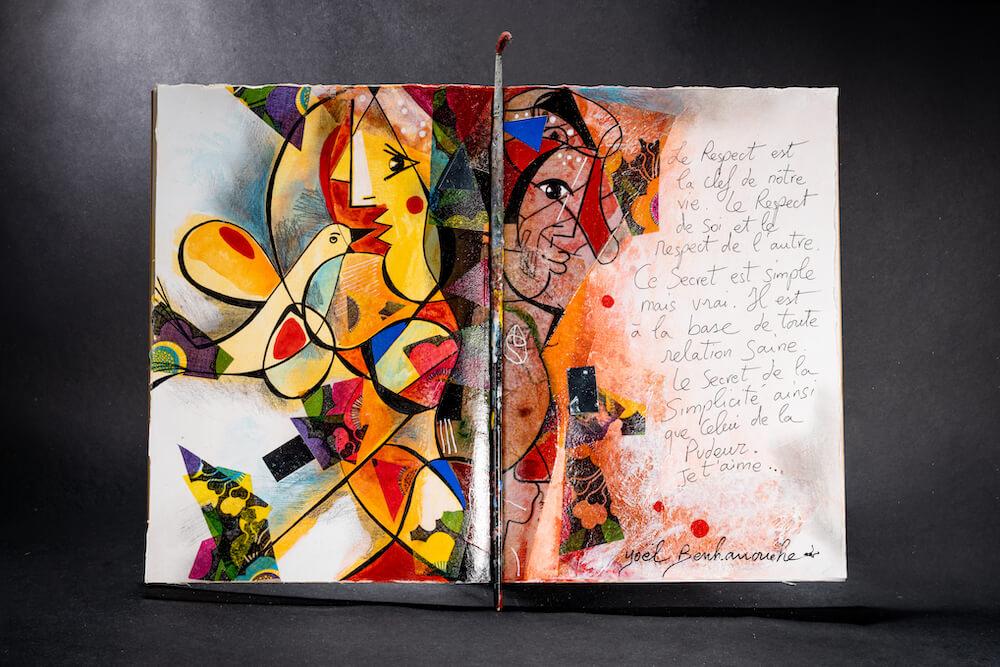 Le Respect est
la clef de nôtre
vie. Le Respect
de Soi et le
respect de l'autre.
Ce Secret est simple
mais vrai. Il est
à la base de toute
relation Saine.
Le Secret de la
Simplicité ainsi
que Celui de la
Pudeur.
Je t'aime...
Yoël Benharrouche